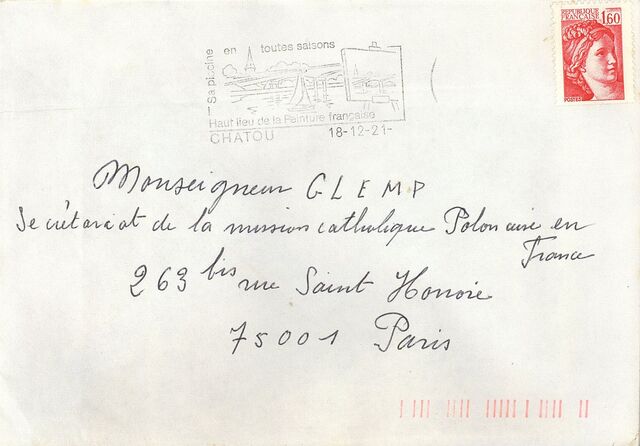 REPUBLIQUE
FRANÇAISE 1,60
POSTES
Sa piscine en toutes saisons
Haut lieu de la Peinture française
CHATOU 18-12-21-
Monseigneur GLEMP
Secrétariat de la mission catholique Polonaise en
France
263 bis rue Saint Honoré
75001 Paris